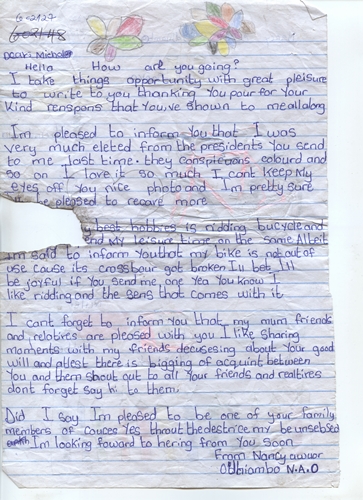 G-2127
G-2148
Dear: Michal
Hello How are you going?
I take things opportunity with great pleisure
to write to you thanking you pour for Your
Kind renspons that You,ve shown to me allalong
Im pleased to inform You that I was
very much eleted from the presidents You send
to me last time. they conspicuous colourd and
so on I love it so much I cant keep My
eyes off. You nice photo and Im pretty sure
be pleased to recare more
best hobbies is ridding bucycle and
end My leisure time on the same Albeit
Im said to inform You that my bike is not out of
use cause its crossbour got broken I'll bet I'll
be joyful if You send me one Yea You know I
like ridding and the sens that comes with it
I cant forget to inform You that my mum friends
and relatires are pleased with you I like sharing
moments with my friends decusesing about Your good
will and atlest there is bigging of acquint between
You and them shout out to all Your friends and realtires
dont forget say hi to them.
Did I say Im pleased to be one of Your family
members of couces Yes my be
Im looking foward to hering from You soon
From Nancy awuor
Othiambo N.A.O